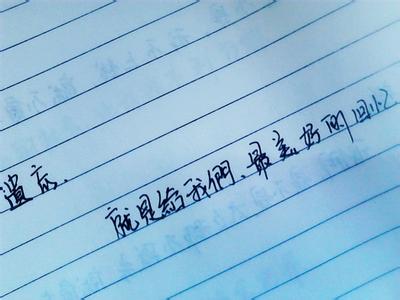 遗忘、
就是给我們、最美好的回忆